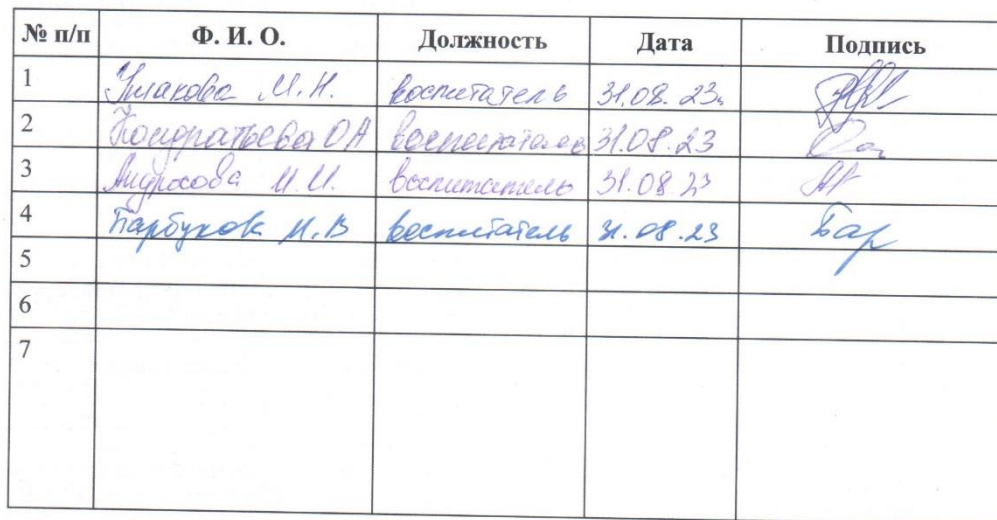 № п/п Ф. И. О. Должность Дата Подпись
1 Ушакова М.Н. воспитатель 31.08.23
2 Кондратьева ОА воспитатель 31.08.23
3 Андросова И.И. воспитатель 31.08 23
4 Барбукова М.В воспитатель 31.08.23 Бар
5
6
7